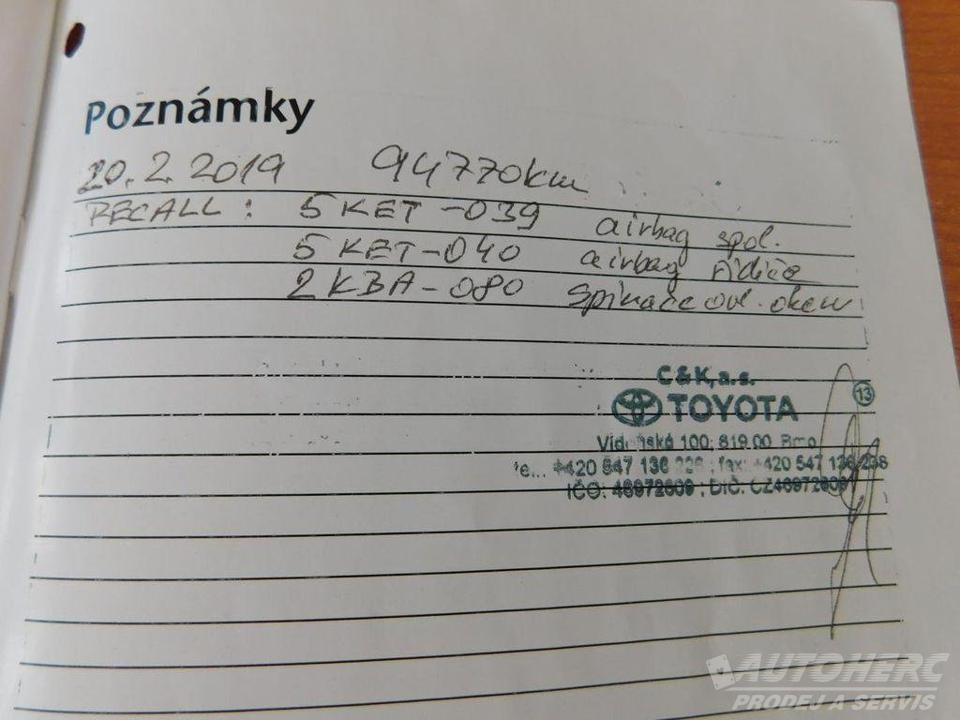 Poznámky
20.2.2019 94770km
RECALL: 5KET-039 airbag spol.
5KET-040 airbag řidiče
2KBA-080 spínače ovl. oken
C&K, a.s.
13
TOYOTA
Vídeňská 100, 619 00 Brno
+420 547 136 ; fax: +420 547 136 238
IČO: 46972609 ; DIČ: CZ46972609
AUTOHERC
PRODEJ A SERVIS